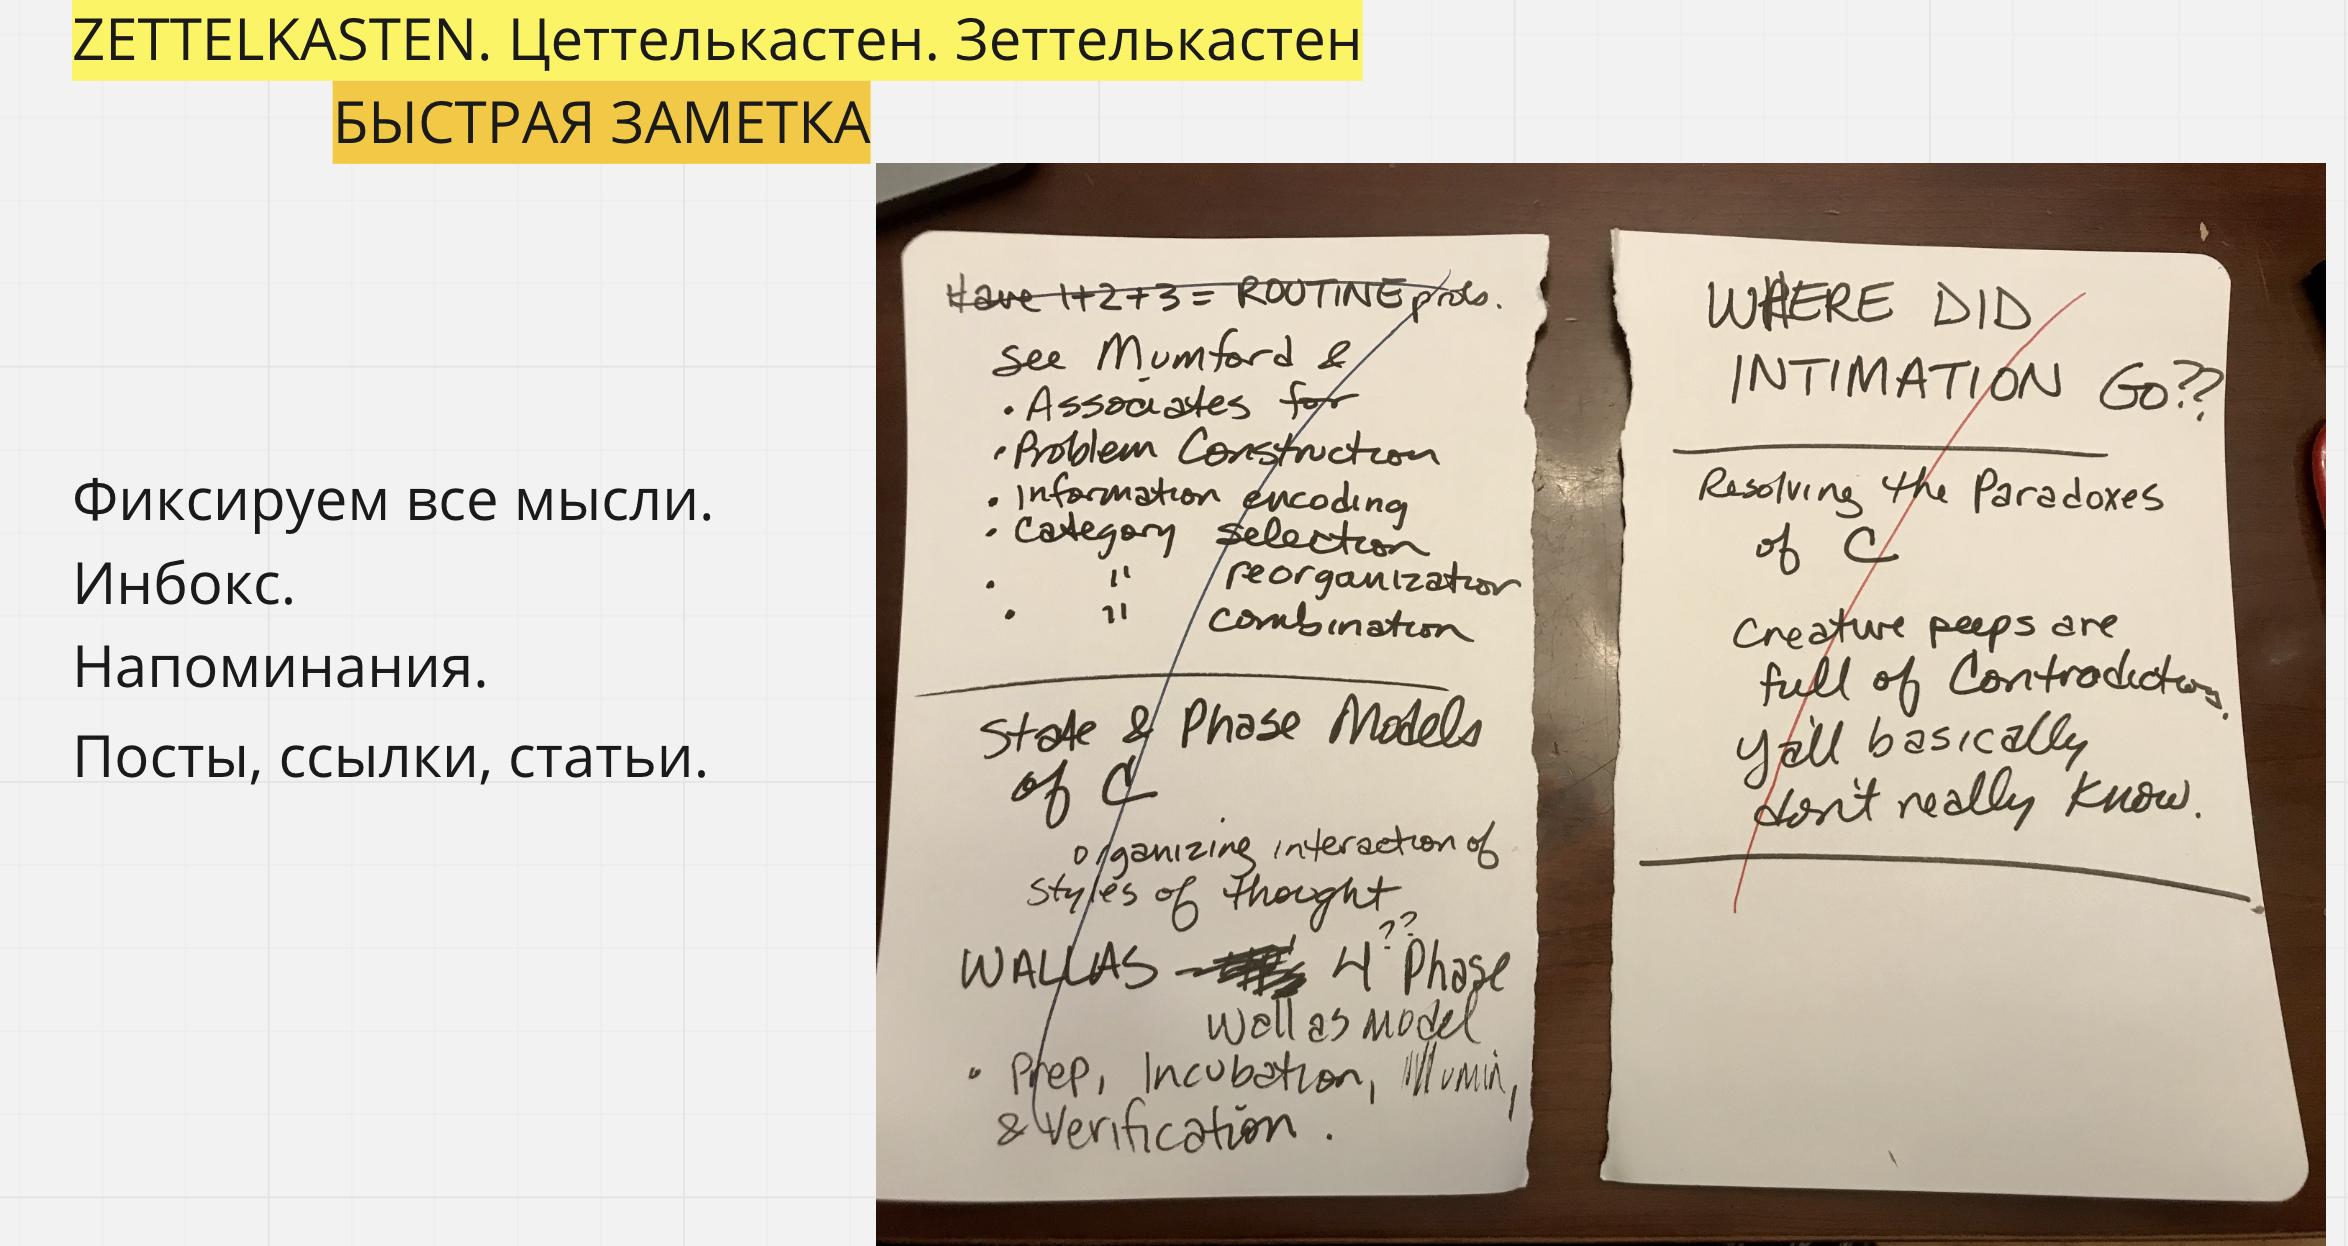 ZETTELKASTEN. Цеттелькастен. Зеттелькастен
БЫСТРАЯ ЗАМЕТКА
Фиксируем все мысли.
Инбокс.
Напоминания.
Посты, ссылки, статьи.
Have 1+2+3 = ROUTINE probs.
See Mumford &
• Associates for
• Problem Construction
• Information encoding
• Category selection
• " reorganization
• " combination
State & Phase Models
of C
organizing interaction of
styles of thought
??
WALLAS 4 Phase
Wallas model
• Prep, Incubation, Illumin,
& Verification.
WHERE DID
INTIMATION GO??
Resolving the Paradoxes
of C
Creative peeps are
full of Contradictions.
y'all basically
don't really know.